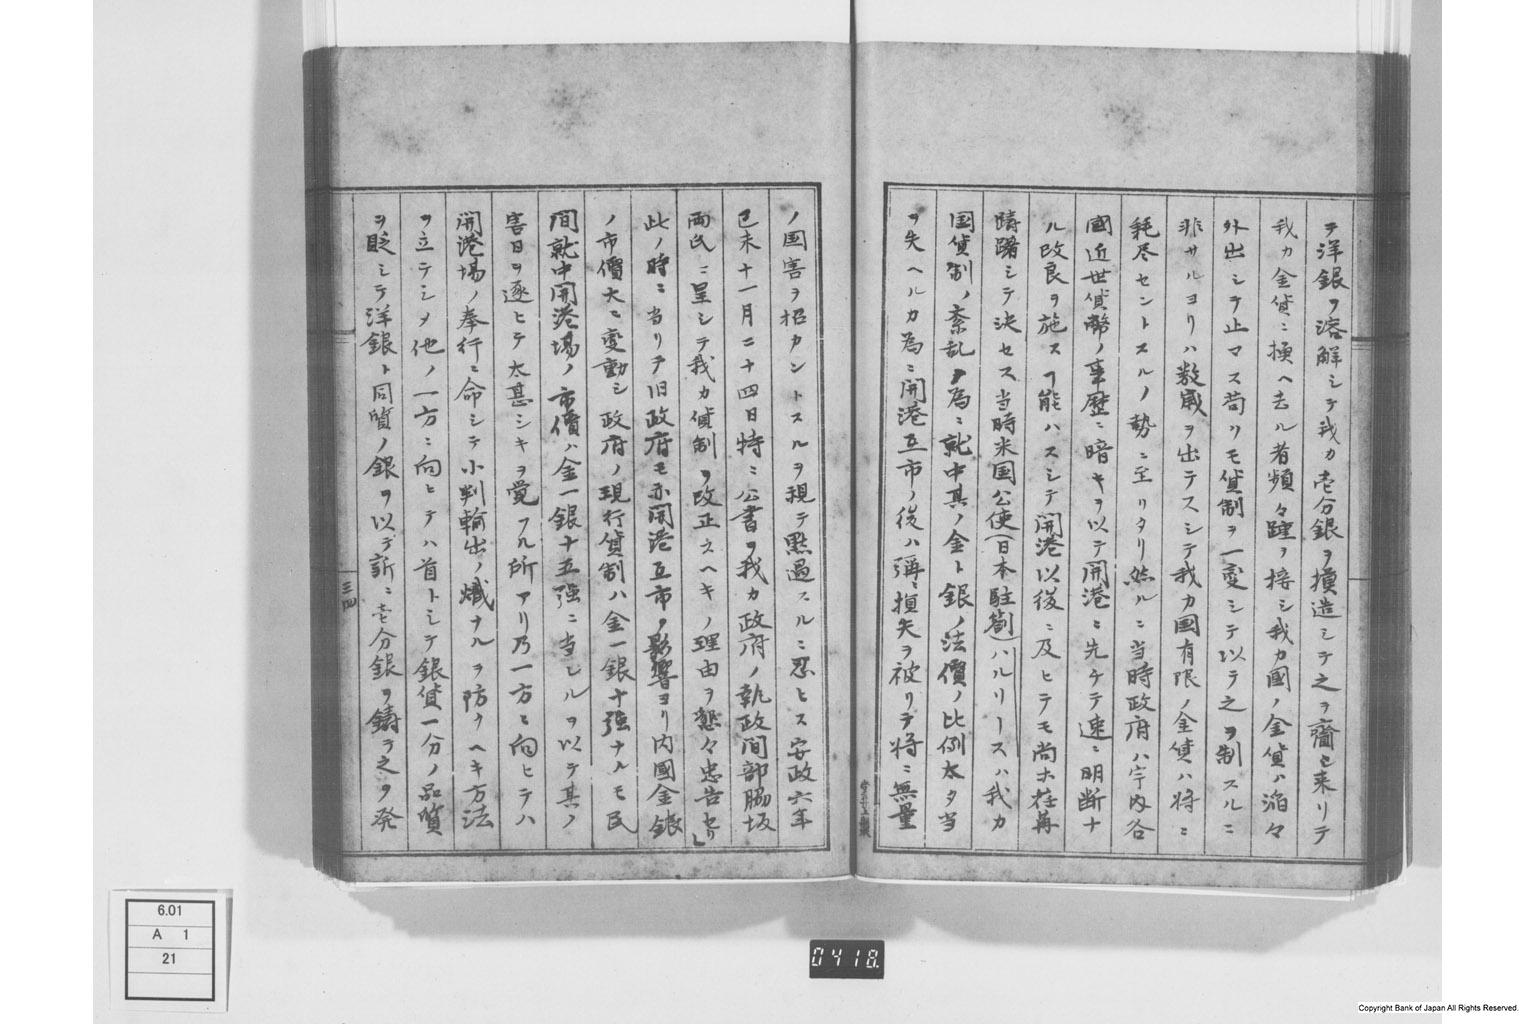 ヲ洋銀ヲ溶解シテ我カ壱分銀ヲ摸造シテ之ヲ齎ラシ来リテ
我カ金貨ニ換ヘ去ル者頻々踵ヲ接シ我カ國ノ金貨ハ滔々
外出シテ止マス苟リモ貨制ヲ一変シテ以テ之ヲ制スルニ
非サルヨリハ数歳ヲ出テスシテ我カ國有限ノ金貨ハ将ニ
耗尽セントスルノ勢ニ至リタリ然ルニ当時政府ハ宇内各
國近世貨幣ノ事歴ニ暗キヲ以テ開港ニ先チテ速ニ明断ナ
ル改良ヲ施スヿ能ハスシテ開港以後ニ及ヒテモ尚ホ荏苒
躊躇シテ決セス当時米国公使(日本駐劄)ハルリースハ我カ
国貨制ノ紊乱ノ為ニ就中其ノ金ト銀ノ法價ノ比例太タ当
ヲ失ヘルカ為ニ開港互市ノ後ハ彌ニ損失ヲ被リテ将ニ無量
ノ国害ヲ招カントスルヲ視テ黙過スルニ忍ヒス安政六年
己未十一月二十四日特ニ公書ヲ我カ政府ノ執政間部脇坂
両氏ニ呈シテ我カ貨制ヲ改正スヘキノ理由ヲ懇々忠告セリ」
此ノ時ニ当リテ旧政府モ亦開港互市ノ影響ヨリ内國金銀
ノ市價大ニ変動シ政府ノ現行貨制ハ金一銀十強ナルモ民
間就中開港場ノ市價ハ金一銀十五強ニ当レルヲ以テ其ノ
害日ヲ逐ヒテ太甚シキヲ覚フル所アリ乃一方ニ向ヒテハ
開港場ノ奉行ニ命シテ小判輸出ノ熾ナルヲ防クヘキ方法
ヲ立テシメ他ノ一方ニ向ヒテハ首トシテ銀貨一分ノ品質
ヲ貶シテ洋銀ト同質ノ銀ヲ以テ新ニ壱分銀ヲ鋳テ之ヲ発
三四
6.01
A 1
21
0418.
Copyright Bank of Japan All Rights Reserved.